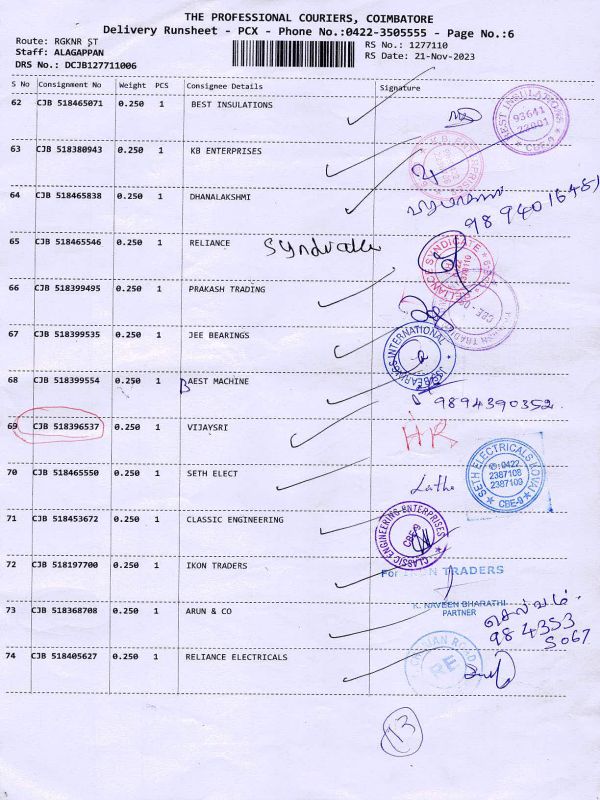 THE PROFESSIONAL COURIERS, COIMBATORE
Delivery Runsheet - PCX - Phone No.:0422-3505555 - Page No.:6
Route: RGKNR ST
RS No.: 1277110
Staff: ALAGAPPAN
RS Date: 21-Nov-2023
DRS No.: DCJB127711006
S No Consignment No Weight PCS Consignee Details Signature
62 CJB 518465071 0.250 1 BEST INSULATIONS
BEST INSULATIONS 93641 22001 CBE-9
63 CJB 518380943 0.250 1 KB ENTERPRISES
64 CJB 518465838 0.250 1 DHANALAKSHMI
9894016451
65 CJB 518465546 0.250 1 RELIANCE Syndicate
RELIANCE SYNDICATE 0422 2378110
66 CJB 518399495 0.250 1 PRAKASH TRADING
67 CJB 518399535 0.250 1 JEE BEARINGS
BEARINGS INTERNATIONAL
68 CJB 518399554 0.250 1 BAEST MACHINE
9894390352.
69 CJB 518396537 0.250 1 VIJAYSRI
HR
70 CJB 518465550 0.250 1 SETH ELECT
Latha
SETH ELECTRICALS KOVAI ✆:0422 2387108 2387109 CBE-9
71 CJB 518453672 0.250 1 CLASSIC ENGINEERING
CLASSIC ENGINEERING ENTERPRISES CBE-9
72 CJB 518197700 0.250 1 IKON TRADERS
For IKON TRADERS
K. NAVEEN BHARATHI
PARTNER
73 CJB 518368708 0.250 1 ARUN & CO
செல்வம்.
984353
5067
74 CJB 518405627 0.250 1 RELIANCE ELECTRICALS
RE
13